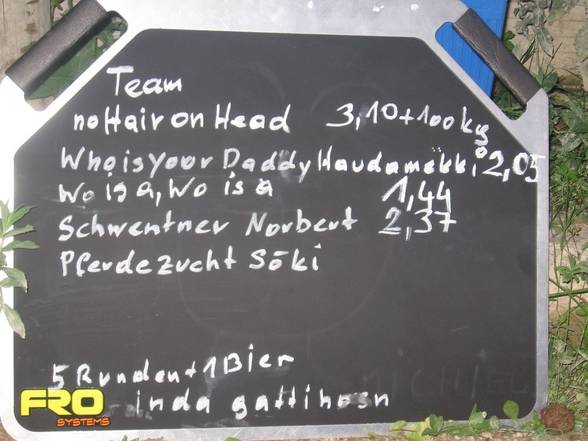 Team
noHair on Head 3,10+100kg
WhoisyourDaddyHaudamökki 2,05
Wo is a, Wo is a 1,44
Schwentner Norbert 2,37
Pferdezucht Söki
5 Runden + 1 Bier
inda gattihosn
FRO
SYSTEMS